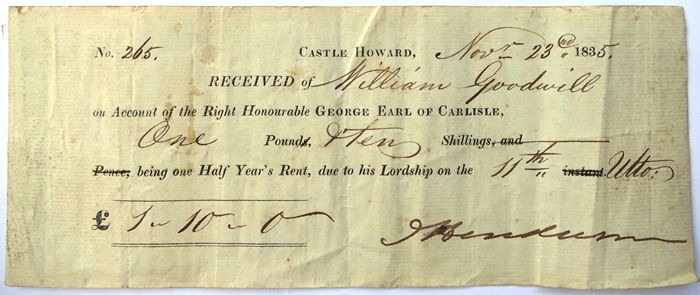 No. 265. CASTLE HOWARD, Novr. 23rd 1835.
RECEIVED of William Goodwill
on Account of the Right Honourable GEORGE EARL OF CARLISLE,
One Pounds, & ten Shillings, and
Pence, being one Half Year's Rent, due to his Lordship on the 11th instant Ulto.
£ 1 - 10 - 0